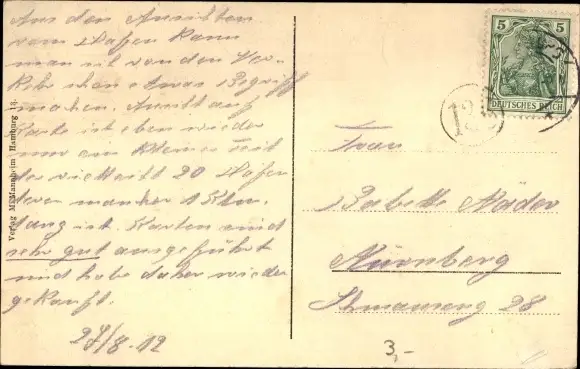 Aus den Ansichten
vom Hafen kann
man sich von dem Ver-
kehr schon etwas Begriff
machen. Ansicht auf
Karte ist eben wieder
nur ein kleiner Teil
der vielleicht 20 Hafen
deren mancher 1 Stun
lang ist. Karten sind
sehr gut ausgeführt
und habe daher wieder
gekauft.
27/8.12
Verlag M. Hamburg 13.
5 5
DEUTSCHES REICH
Frau
Babette Mäder
Nürnberg
28
3,-